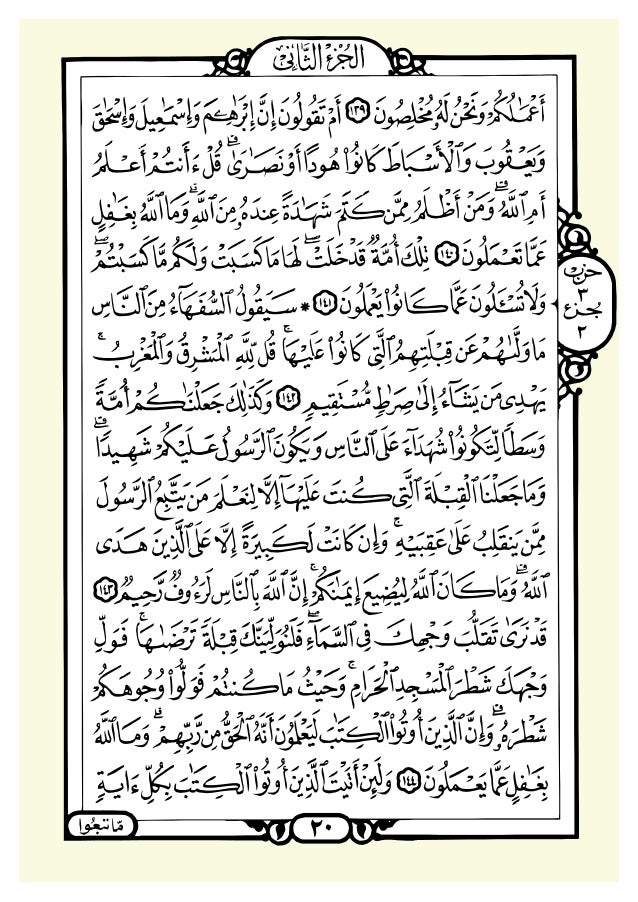 الجُزْءُ الثَّانِيْ
أَعْمَـٰلُكُمْ وَنَحْنُ لَهُۥ مُخْلِصُونَ ﴿١٣٩﴾ أَمْ تَقُولُونَ إِنَّ إِبْرَٰهِـۧمَ وَإِسْمَـٰعِيلَ وَإِسْحَـٰقَ
وَيَعْقُوبَ وَٱلْأَسْبَاطَ كَانُوا۟ هُودًا أَوْ نَصَـٰرَىٰ ۗ قُلْ ءَأَنتُمْ أَعْلَمُ
أَمِ ٱللَّهُ ۗ وَمَنْ أَظْلَمُ مِمَّن كَتَمَ شَهَـٰدَةً عِندَهُۥ مِنَ ٱللَّهِ ۗ وَمَا ٱللَّهُ بِغَـٰفِلٍ
عَمَّا تَعْمَلُونَ ﴿١٤٠﴾ تِلْكَ أُمَّةٌ قَدْ خَلَتْ ۖ لَهَا مَا كَسَبَتْ وَلَكُم مَّا كَسَبْتُمْ ۖ
وَلَا تُسْـَٔلُونَ عَمَّا كَانُوا۟ يَعْمَلُونَ ﴿١٤١﴾ * سَيَقُولُ ٱلسُّفَهَآءُ مِنَ ٱلنَّاسِ
مَا وَلَّىٰهُمْ عَن قِبْلَتِهِمُ ٱلَّتِى كَانُوا۟ عَلَيْهَا ۚ قُل لِّلَّهِ ٱلْمَشْرِقُ وَٱلْمَغْرِبُ ۚ
يَهْدِى مَن يَشَآءُ إِلَىٰ صِرَٰطٍ مُّسْتَقِيمٍ ﴿١٤٢﴾ وَكَذَٰلِكَ جَعَلْنَـٰكُمْ أُمَّةً
وَسَطًا لِّتَكُونُوا۟ شُهَدَآءَ عَلَى ٱلنَّاسِ وَيَكُونَ ٱلرَّسُولُ عَلَيْكُمْ شَهِيدًا ۗ
وَمَا جَعَلْنَا ٱلْقِبْلَةَ ٱلَّتِى كُنتَ عَلَيْهَآ إِلَّا لِنَعْلَمَ مَن يَتَّبِعُ ٱلرَّسُولَ
مِمَّن يَنقَلِبُ عَلَىٰ عَقِبَيْهِ ۚ وَإِن كَانَتْ لَكَبِيرَةً إِلَّا عَلَى ٱلَّذِينَ هَدَى
ٱللَّهُ ۗ وَمَا كَانَ ٱللَّهُ لِيُضِيعَ إِيمَـٰنَكُمْ ۚ إِنَّ ٱللَّهَ بِٱلنَّاسِ لَرَءُوفٌ رَّحِيمٌ ﴿١٤٣﴾
قَدْ نَرَىٰ تَقَلُّبَ وَجْهِكَ فِى ٱلسَّمَآءِ ۖ فَلَنُوَلِّيَنَّكَ قِبْلَةً تَرْضَىٰهَا ۚ فَوَلِّ
وَجْهَكَ شَطْرَ ٱلْمَسْجِدِ ٱلْحَرَامِ ۚ وَحَيْثُ مَا كُنتُمْ فَوَلُّوا۟ وُجُوهَكُمْ
شَطْرَهُۥ ۗ وَإِنَّ ٱلَّذِينَ أُوتُوا۟ ٱلْكِتَـٰبَ لَيَعْلَمُونَ أَنَّهُ ٱلْحَقُّ مِن رَّبِّهِمْ ۗ وَمَا ٱللَّهُ
بِغَـٰفِلٍ عَمَّا يَعْمَلُونَ ﴿١٤٤﴾ وَلَئِنْ أَتَيْتَ ٱلَّذِينَ أُوتُوا۟ ٱلْكِتَـٰبَ بِكُلِّ ءَايَةٍ
حزب
٣
جزء
٢
مَّا تَبِعُوا
٢٠